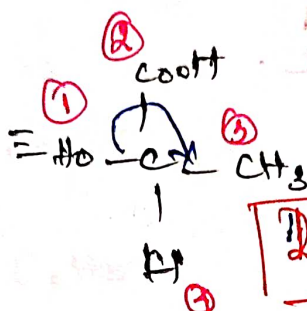 ②
COOH
①
③
HO - C - CH3
H
④
D